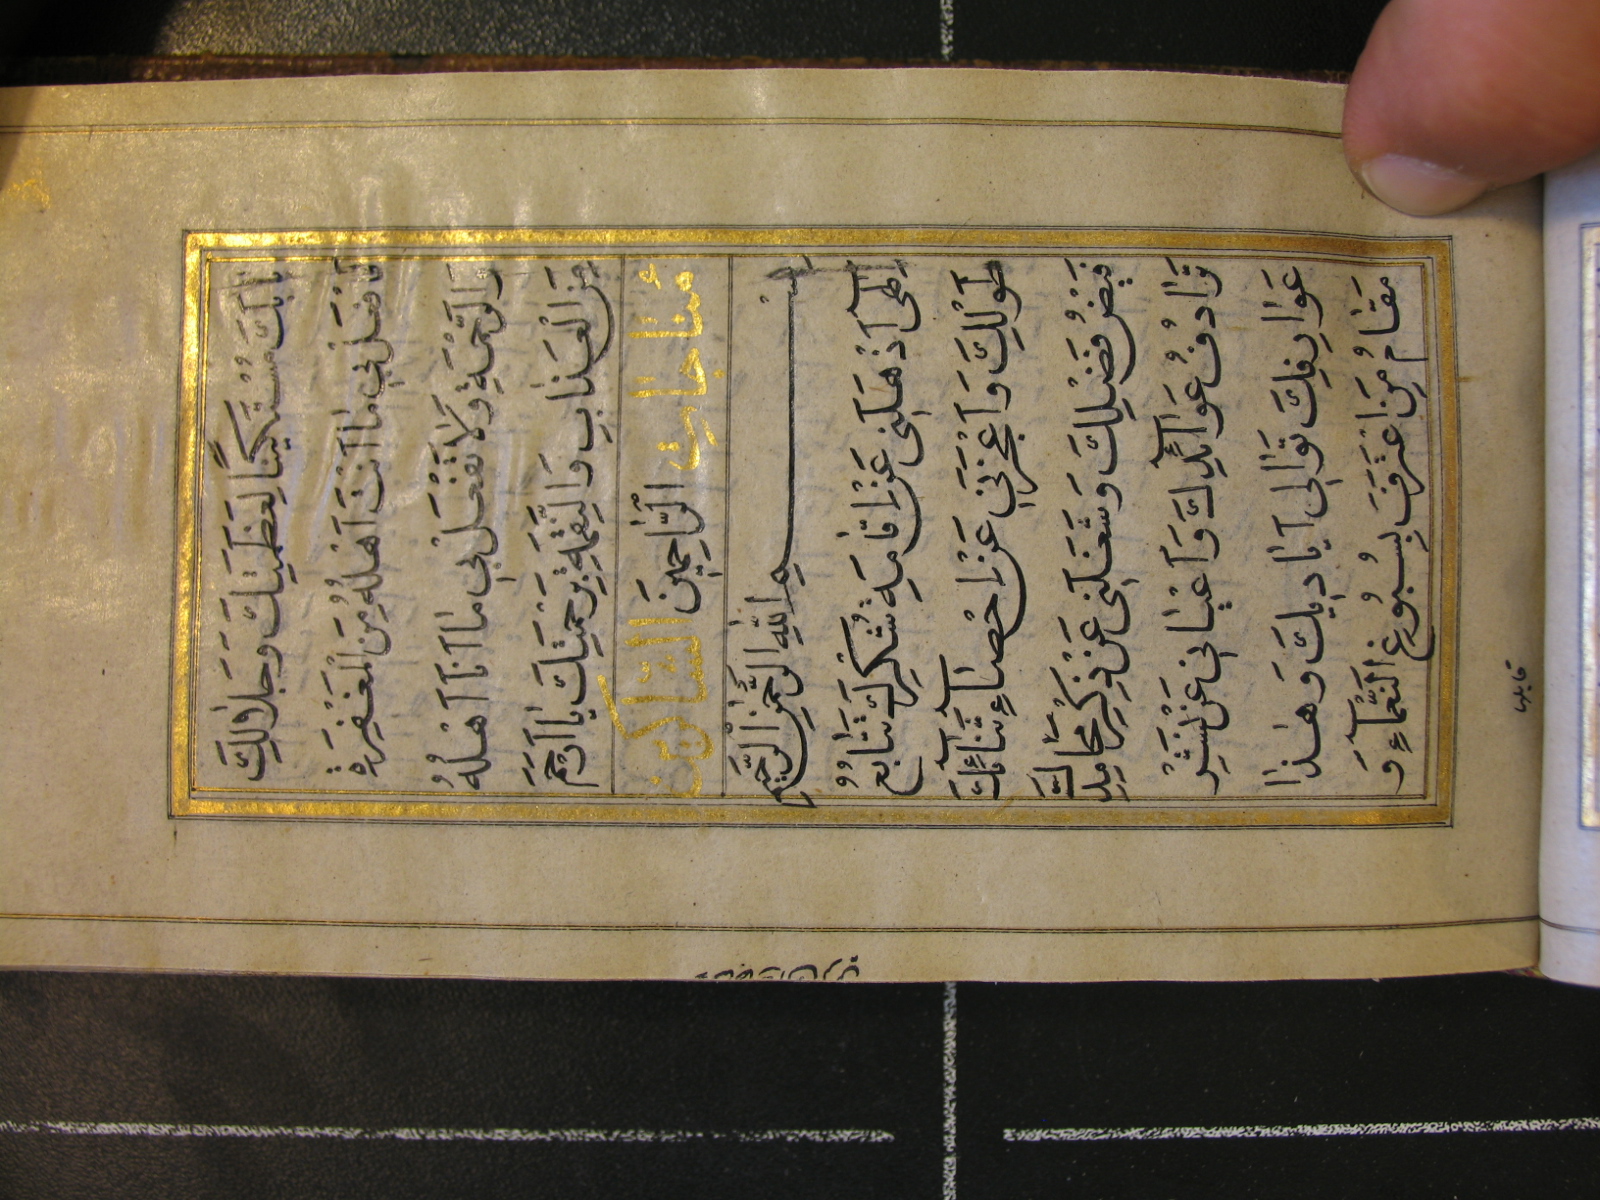 بِبَابِكَ مُسْتَكِينًا لِعَظَمَتِكَ وَجَلَالِكَ
فَافْعَلْ بِي مَا اَنْتَ اَهْلُهُ مِنَ الْمَغْفِرَةِ
وَالرَّحْمَةِ وَلَا تَفْعَلْ بِي مَا اَنَا اَهْلُهُ
مِنَ الْعَذَابِ وَالنِّقْمَةِ بِرَحْمَتِكَ يَا اَرْحَمَ
مُنَاجَات الرَّاحِمِينَ الشَّاكِرِين
بِسْمِ اللهِ الرَّحْمٰنِ الرَّحِيمِ
اِلٰهِي اَذْهَلَنِي عَنْ اِقَامَةِ شُكْرِكَ تَتَابُعُ
طَوْلِكَ وَاَعْجَزَنِي عَنْ اِحْصَاءِ ثَنَائِكَ
فَيْضُ فَضْلِكَ وَشَغَلَنِي عَنْ ذِكْرِ مَحَامِدِكَ
تَرَادُفُ عَوَائِدِكَ وَاَعْيَانِي عَنْ نَشْرِ
عَوَارِفِكَ تَوَالِي اَيَادِيكَ وَهٰذَا
مَقَامُ مَنِ اعْتَرَفَ بِسُبُوغِ النَّعْمَاءِ وَ
قابلها